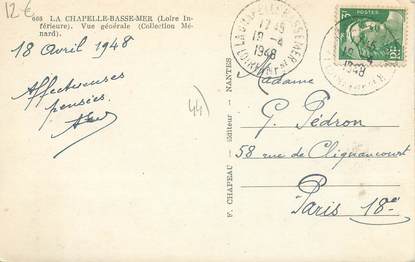 12€
603 LA CHAPELLE-BASSE-MER (Loire In-
férieure). Vue générale (Collection Mé-
nard).
18 Avril 1948
Affectueuses
pensées.
(44)
F. CHAPEAU - éditeur - NANTES
LA CHAPELLE BASSE MER
17 45
19 - 4
1948
POSTES
1948
Madame
G. Pédron
58 rue de Clignancourt
Paris 18e